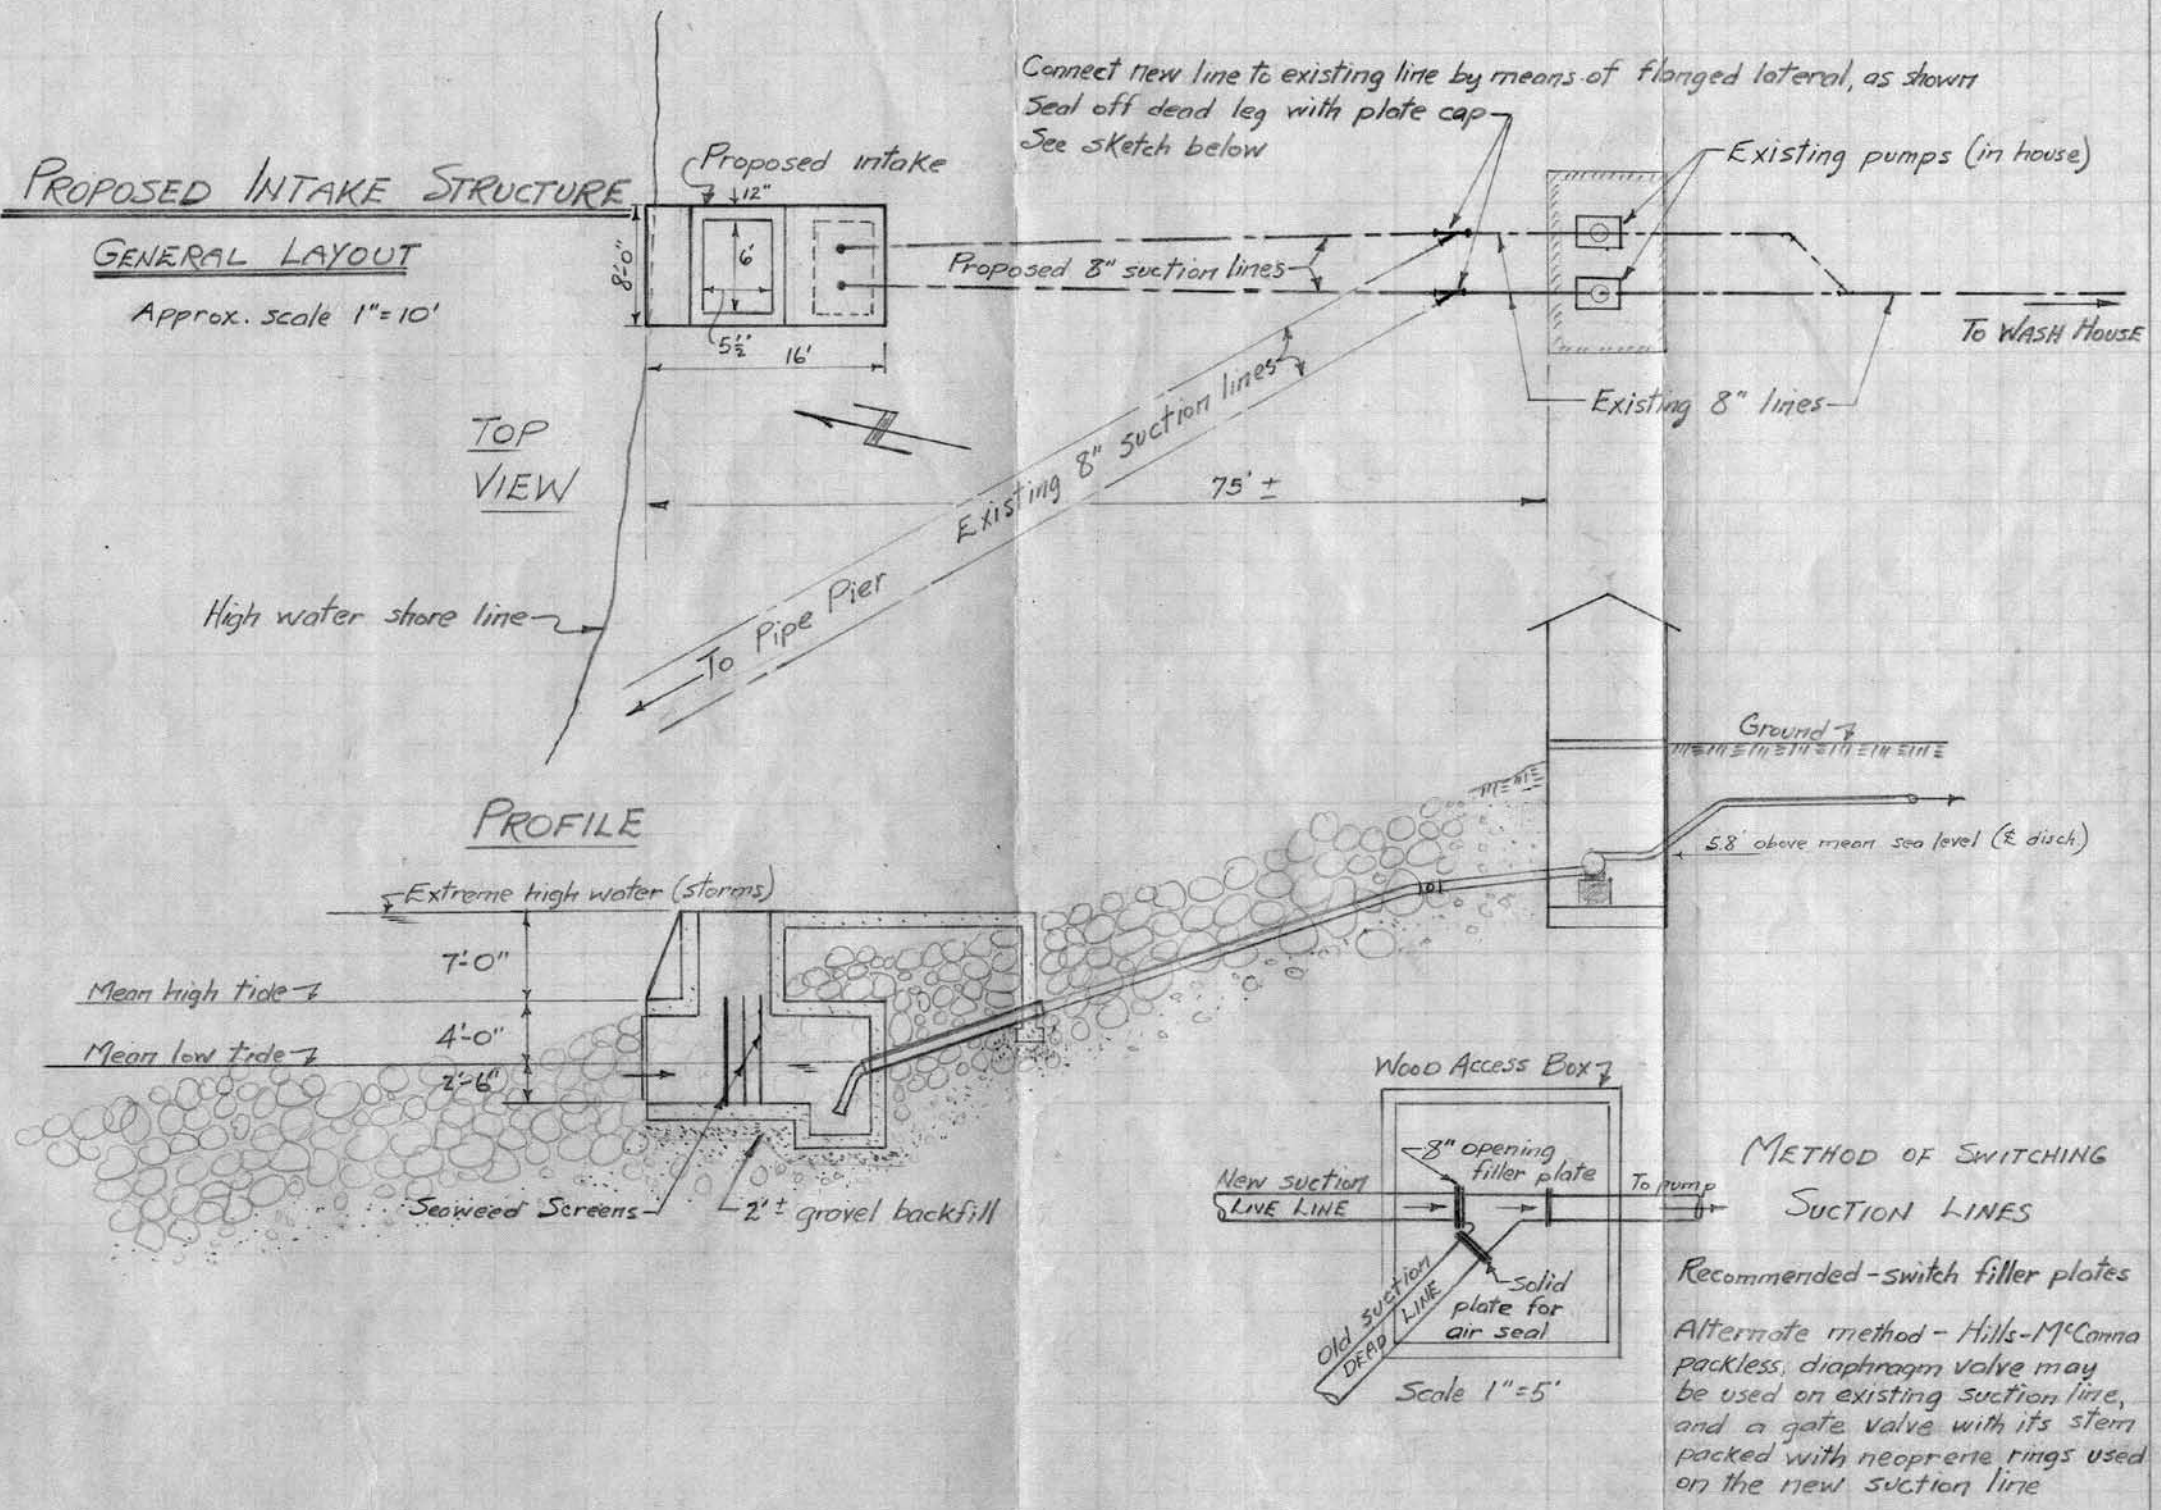 Connect new line to existing line by means of flanged lateral, as shown
Seal off dead leg with plate cap
See sketch below
PROPOSED INTAKE STRUCTURE
GENERAL LAYOUT
Approx. scale 1"=10'
Proposed intake
12"
8'-0"
6'
5½'
16'
Proposed 8" suction lines
Existing pumps (in house)
To WASH HOUSE
Existing 8" lines
TOP
VIEW
Existing 8" suction lines
75' ±
To Pipe Pier
High water shore line
Ground
PROFILE
5.8' above mean sea level (℄ disch.)
Extreme high water (storms)
7'-0"
Mean high tide
4'-0"
Mean low tide
2'-6"
Seaweed Screens
2'± gravel backfill
Wood Access Box
8" opening
filler plate
New suction
LIVE LINE
To pump
Old suction
DEAD LINE
Solid
plate for
air seal
Scale 1"=5'
METHOD OF SWITCHING
SUCTION LINES
Recommended - switch filler plates
Alternate method - Hills-McCanna
packless, diaphragm valve may
be used on existing suction line,
and a gate valve with its stem
packed with neoprene rings used
on the new suction line